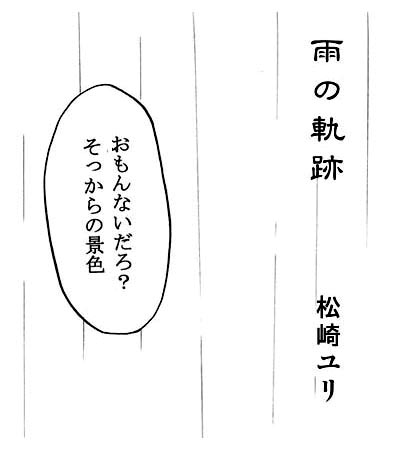 雨の軌跡
松崎ユリ
おもんないだろ？
そっからの景色